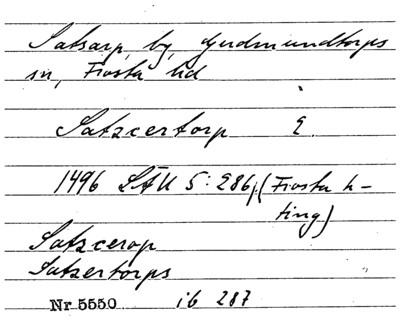 Satsarp, by, Gudmundtorps
sn, Frosta hd
Satzcertorp 2.
1496 LÄU 5: 286, (Frosta h-
ting)
Satzcerop
Satzertorps
Nr 5550 ib 287